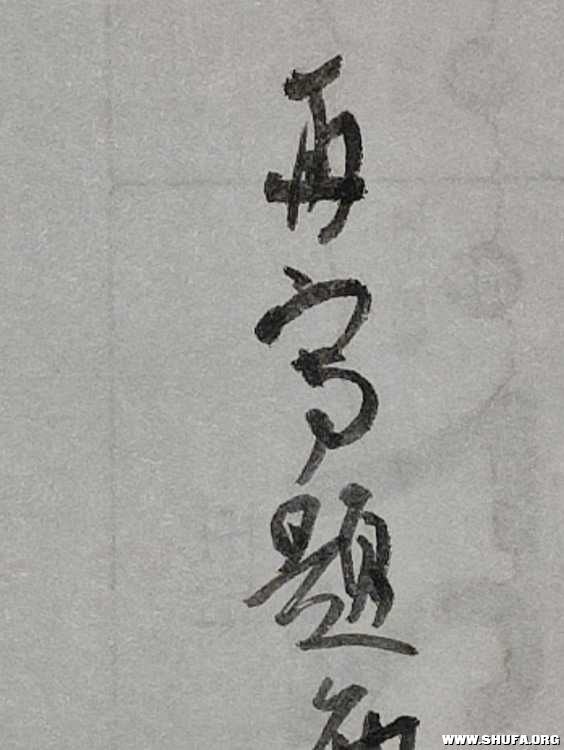 再写題
WWW.SHUFA.ORG